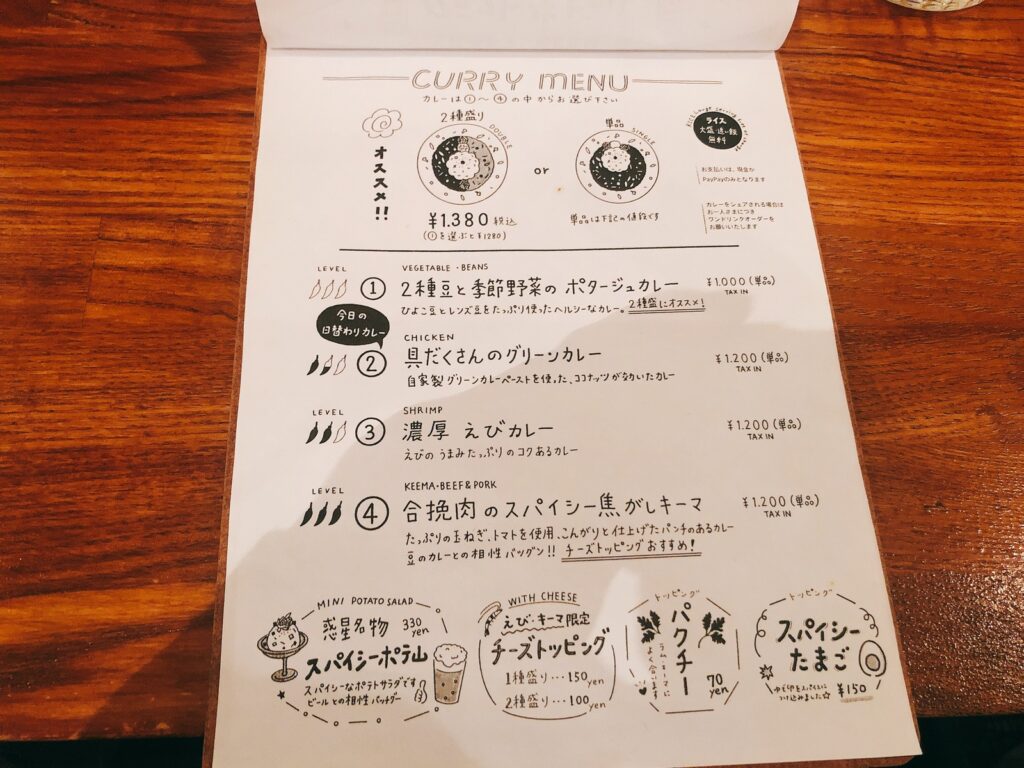 CURRY MENU
カレーは①〜④の中からお選び下さい
オススメ!!
2種盛り
DOUBLE
¥1.380 税込
(①を選ぶと¥1280)
or
単品
SINGLE
単品は下記の値段です
ライス
大盛・追い飯
無料
お支払いは、現金か
PayPayのみとなります
カレーをシェアされる場合は
お一人さまにつき
ワンドリンクオーダーを
お願いいたします
LEVEL
① VEGETABLE・BEANS
2種豆と季節野菜の ポタージュカレー ¥1.000(単品)
TAX IN
ひよこ豆とレンズ豆をたっぷり使ったヘルシーなカレー。2種盛にオススメ!
今日の
日替わりカレー
② CHICKEN
具だくさんのグリーンカレー ¥1.200(単品)
TAX IN
自家製グリーンカレーペーストを使った、ココナッツが効いたカレー
LEVEL
③ SHRIMP
濃厚 えびカレー ¥1.200(単品)
TAX IN
えびの うまみたっぷりのコクあるカレー
LEVEL
④ KEEMA・BEEF&PORK
合挽肉のスパイシー焦がしキーマ ¥1.200(単品)
TAX IN
たっぷりの玉ねぎ、トマトを使用、こんがりと仕上げたパンチのあるカレー
豆のカレーとの相性バツグン!! チーズトッピングおすすめ!
MINI POTATO SALAD
惑星名物 330yen
スパイシーポテ山
スパイシーなポテトサラダです
ビールとの相性バッチグー
WITH CHEESE
えび・キーマ限定
チーズトッピング
1種盛り…150yen
2種盛り…100yen
トッピング
パクチー
ラム・キーマに
よく合います
70yen
トッピング
スパイシー
たまご
ゆで卵をスパイスに
つけ込みました☆
¥150